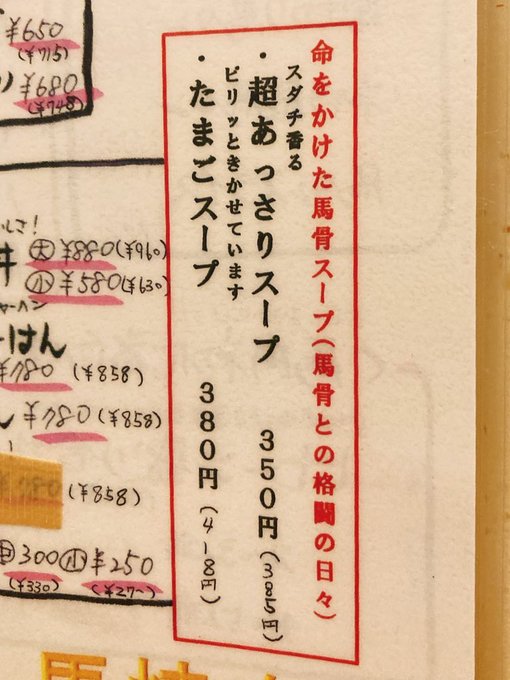 命をかけた馬骨スープ(馬骨との格闘の日々)
スダチ香る
・超あっさりスープ 350円(385円)
ピリッときかせています
・たまごスープ 380円(418円)
¥650
(¥715)
¥680
(¥748)
井 大 ¥880(¥960)
小 ¥580(¥630)
ャーハン
ーはん
¥780 (¥858)
¥780 (¥858)
(¥858)
中 300 小 ¥250
(¥330) (¥275)